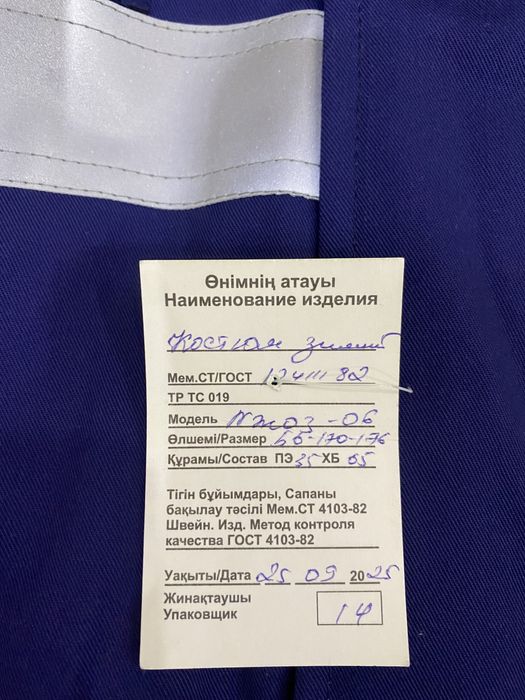 Өнімнің атауы
Наименование изделия
Костюм зимний
Мем.СТ/ГОСТ 12.4.111-82
ТР ТС 019
Модель -06
Өлшемі/Размер -170-176
Құрамы/Состав ПЭ 35 ХБ 65
Тігін бұйымдары, Сапаны
бақылау тәсілі Мем.СТ 4103-82
Швейн. Изд. Метод контроля
качества ГОСТ 4103-82
Уақыты/Дата 25 09 2025
Жинақтаушы
Упаковщик 14